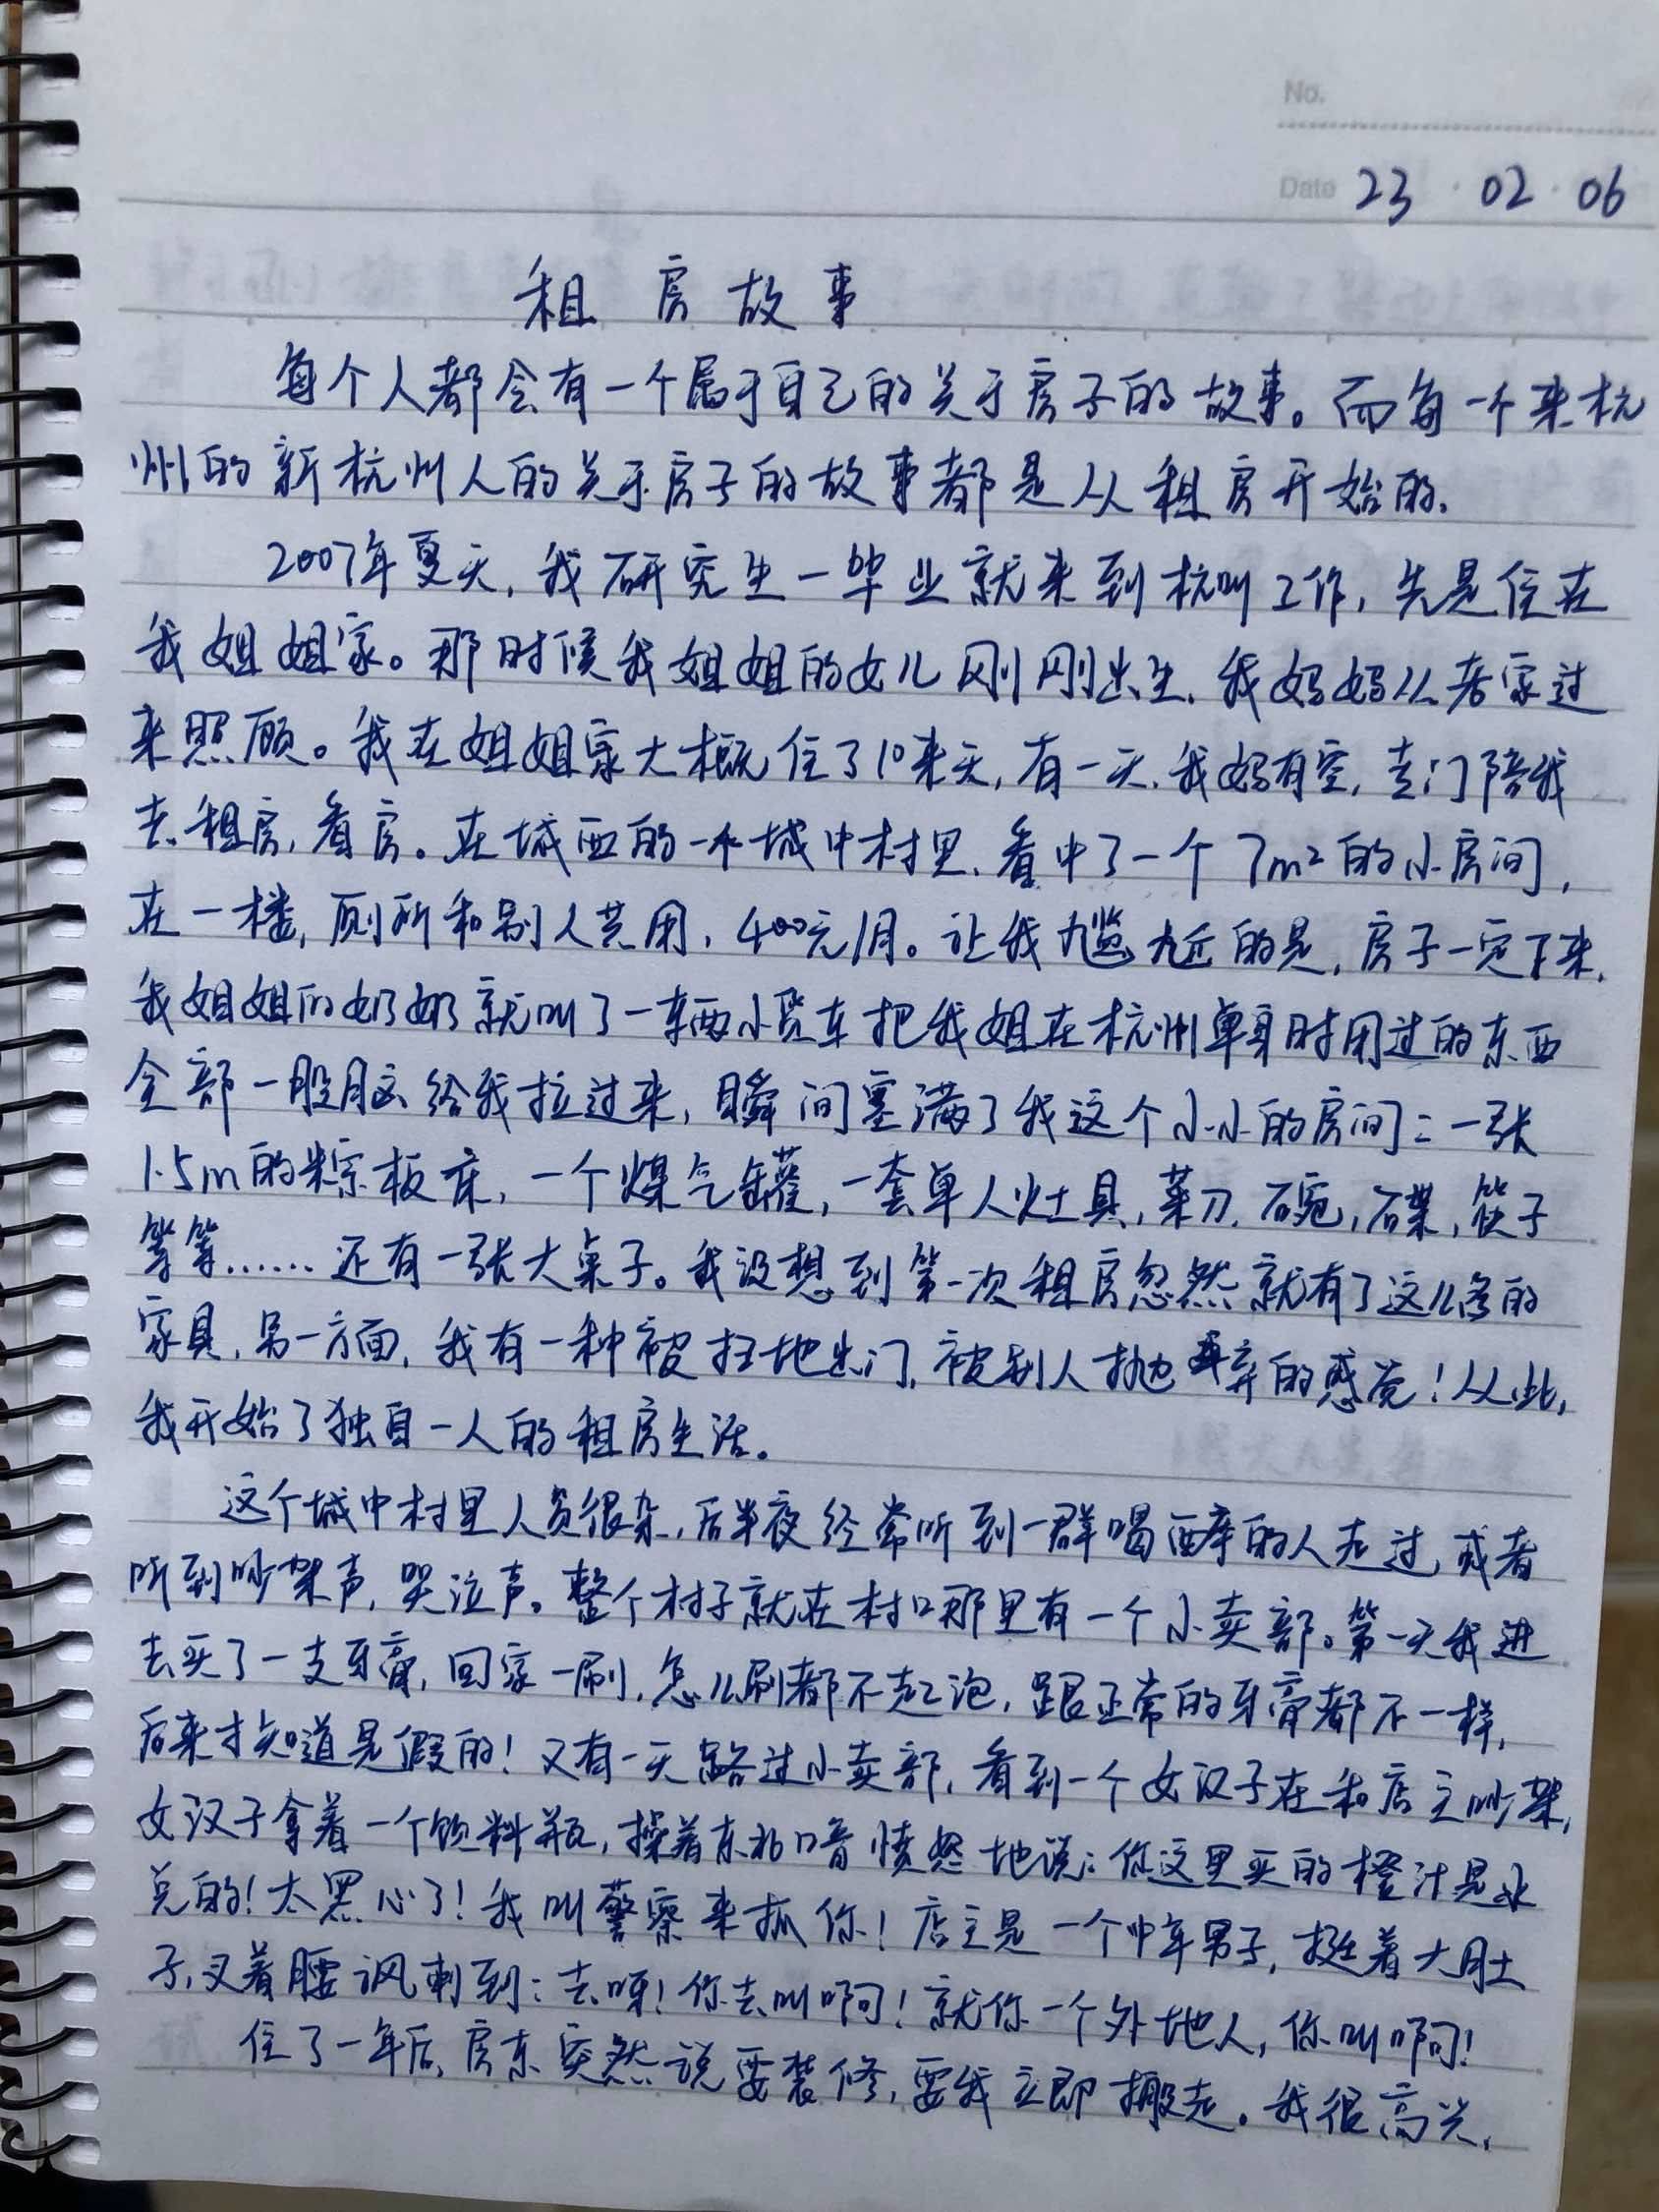 No.
Date 23 · 02 · 06
租房故事
每个人都会有一个属于自己的关于房子的故事。而每一个来杭
州的新杭州人的关于房子的故事都是从租房开始的。
2007年夏天,我研究生一毕业就来到杭州工作,先是住在
我姐姐家。那时候我姐姐的女儿刚刚出生,我妈妈从老家过
来照顾。我在姐姐家大概住了10来天,有一天,我妈有空,专门陪我
去租房,看房。在城西的一个城中村里,看中了一个7m²的小房间,
在一楼,厕所和别人共用,400元/月。让我尴尬的是,房子一定下来,
我姐姐的奶奶就叫了一辆小货车把我姐在杭州单身时用过的东西
全部一股脑给我拉过来,瞬间塞满了我这个小小的房间:一张
1.5m的棕板床,一个煤气罐,一套单人灶具,菜刀,碗,碟,筷子
等等……还有一张大桌子。我没想到第一次租房忽然就有了这么多的
家具,另一方面,我有一种被扫地出门,被别人抛弃的感觉!从此,
我开始了独自一人的租房生活。
这个城中村里人员很杂,后半夜经常听到一群喝醉的人走过,或者
听到吵架声,哭泣声。整个村子就在村口那里有一个小卖部。第一天我进
去买了一支牙膏,回家一刷,怎么刷都不起泡,跟正常的牙膏都不一样,
后来才知道是假的!又有一天路过小卖部,看到一个女汉子在和店主吵架,
女汉子拿着一个饮料瓶,操着东北口音愤怒地说:你这里买的橙汁是水
兑的!太黑心了!我叫警察来抓你!店主是一个中年男子,挺着大肚
子,叉着腰讽刺到:去呀!你去叫啊!就你一个外地人,你叫啊!
住了一年后,房东突然说要装修,要我立即搬走。我很高兴,